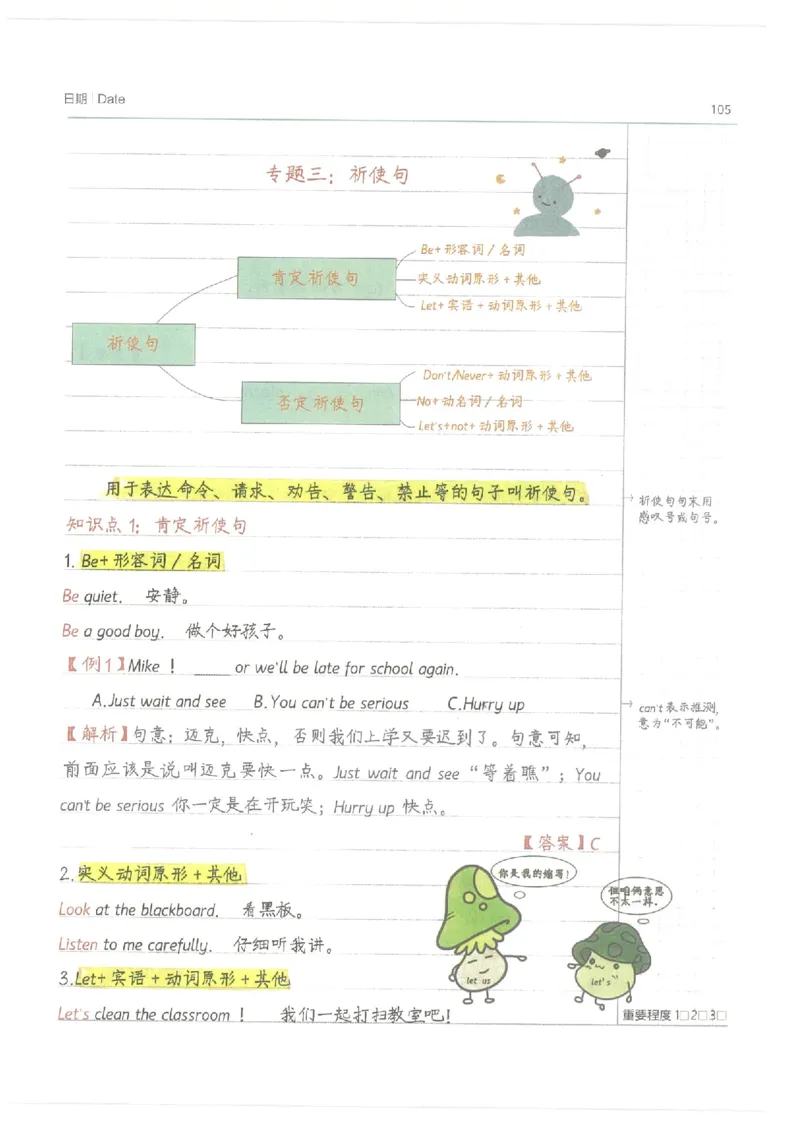 日期 | Date
105
专题三：祈使句
肯定祈使句
Be+形容词/名词
实义动词原形+其他
Let+宾语+动词原形+其他
祈使句
否定祈使句
Don't/Never+动词原形+其他
No+动名词/名词
Let's+not+动词原形+其他
用于表达命令、请求、劝告、警告、禁止等的句子叫祈使句。
祈使句句末用
感叹号或句号。
知识点1：肯定祈使句
1. Be+形容词/名词
Be quiet. 安静。
Be a good boy. 做个好孩子。
【例1】Mike！ _____ or we'll be late for school again.
A.Just wait and see B.You can't be serious C.Hurry up
can't表示推测，
意为“不可能”。
【解析】句意：迈克，快点，否则我们上学又要迟到了。句意可知，
前面应该是说叫迈克要快一点。Just wait and see“等着瞧”；You
can't be serious 你一定是在开玩笑；Hurry up 快点。
【答案】C
2. 实义动词原形+其他
Look at the blackboard. 看黑板。
Listen to me carefully. 仔细听我讲。
3.Let+宾语+动词原形+其他
Let's clean the classroom！ 我们一起打扫教室吧！
你是我的缩写！
但咱俩意思
不太一样。
let us
let's
重要程度 1□2□3□